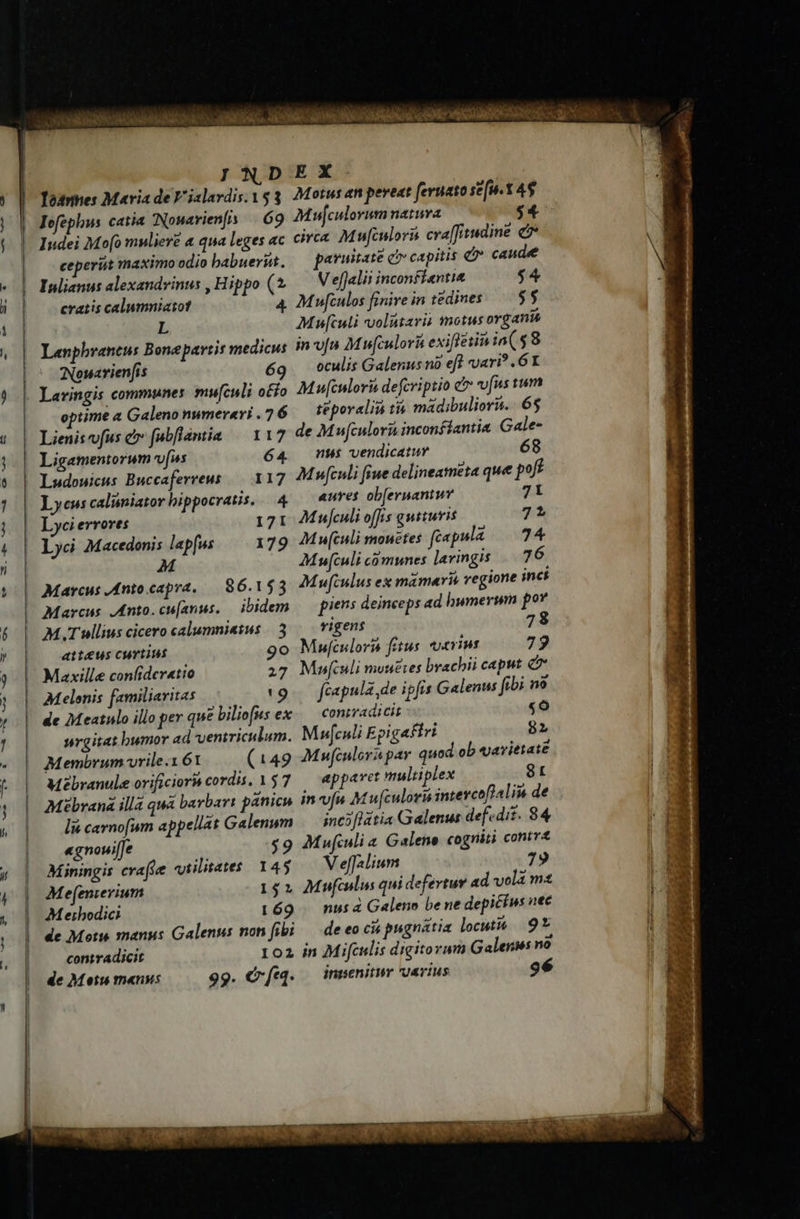 INDEX
Ioannes Maria de Vialardis. 153
Iosephus catia Nouariensis 69
Iudei Moſo mulierē a qua leges ac
ceperūt maximo odio habuerūt.
Iulianus alexandrinus , Hippo (2
cratis calumniatot 4
L
Lanphrancus Bonepartis medicus
Nouarienſis 69
Laringis communes muſculi octo
optime a Galeno numerari . 76
Lienis vſus & ſubſtantia 117
Ligamentorum vſus 64
Ludouicus Buccaferreus 117
Lycus calūniator hippocratis. 4
Lyci errores 171
Lyci Macedonis lapſus 179
M
Marcus Anto capra. 86.153
Marcus Anto. cuſanus. ibidem
M,Tullius cicero calumniatus 3
atteus curtius 90
Maxille conſideratio 27
Melonis familiaritas 19
de Meatulo illo per quē bilioſus ex
urgitat humor ad ventriculum.
Membrum virile.161 (149
Mēbranule orificiorū cordis. 157
Mēbranā illā quā barbari pānicu
lū carnoſum appellāt Galenum
agnouiſſe 59
Miningis craſſe vtilitates 145
Meſenterium 152
Methodici 169
de Motu manus Galenus non ſibi
contradicit 102
de Motu manus 99. & ſeq.
Motus an pereat ſeruato sēſu. 145
Muſculorum natura 54
circa Muſculorū craſſitudinē &
paruitatē & capitis & caudæ
Veſſalii inconſtantia 54
Muſculos finire in tēdines 55
Muſculi volūtarii motus organū
in vſu Muſculorū exiſtētiū in( 58
oculis Galenus nō eſt vari⁹ .61
Muſculorū deſcriptio & vſus tum
tēporaliū tū mādibuliorū. 65
de Muſculorū inconſtantia Gale-
nus vendicatur 68
Muſculi ſiue delineamēta que poſt
aures obſeruantur 71
Muſculi oſſis gutturis 72
Muſculi mouētes ſcapulā 74
Muſculi cōmunes laringis 76
Muſculus ex māmarū regione inci
piens deinceps ad humerum por
rigens 78
Muſculorū ſitus varius 79
Muſculi mouētes brachii caput &
ſcapulā,de ipſis Galenus ſibi nō
contradicit 50
Muſculi Epigaſtri 82
Muſculorū par quod ob varietatē
apparet multiplex 81
in vſu Muſculorū intercoſtaliū de
incōſtātia Galenus defēdit. 84
Muſculi a Galeno cogniti contra
Veſſalium 79
Muſculus qui defertur ad volā ma
nus à Galeno bene depictus nec
de eo cū pugnātia locutū 92
in Miſculis digitorum Galenus nō
inuenitur varius 96